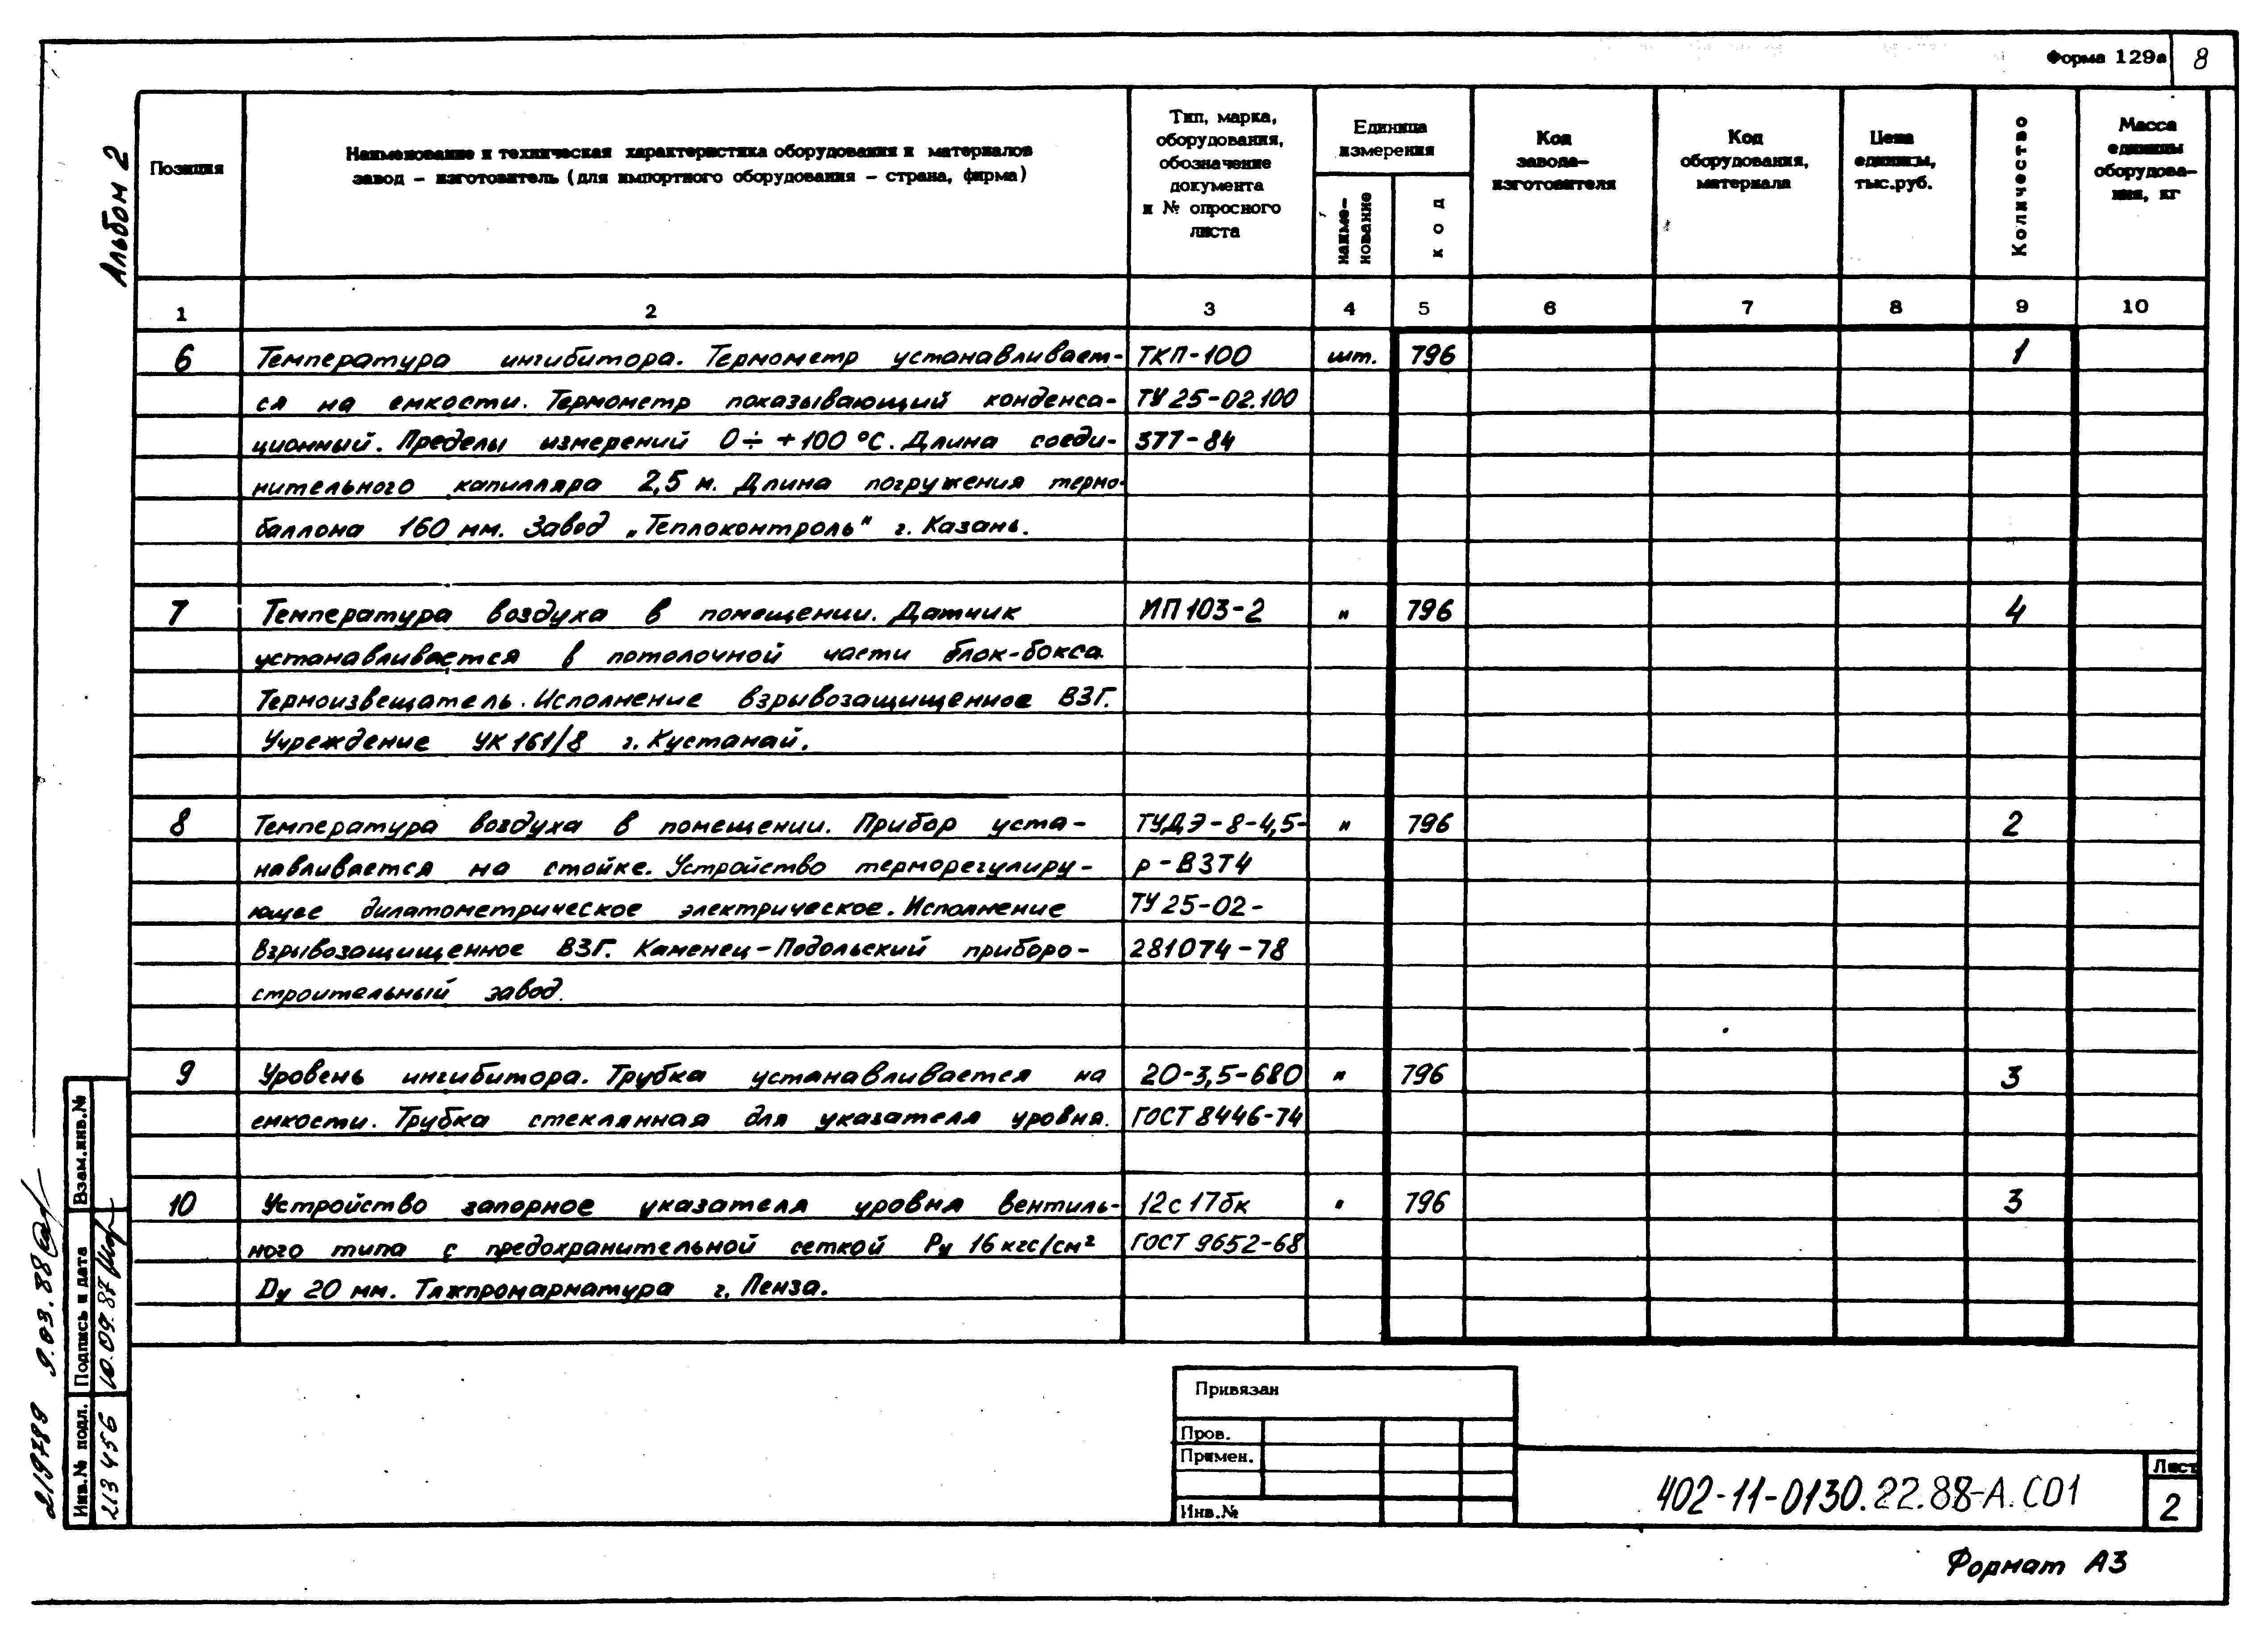 Форма 129а 8
Альбом 2
Позиция
Наименование и техническая характеристика оборудования и материалов
завод – изготовитель (для импортного оборудования – страна, фирма)
Тип, марка,
оборудования,
обозначение
документа
и № опросного
листа
Единица
измерения
наиме-
нование
код
Код
завода-
изготовителя
Код
оборудования,
материала
Цена
единицы,
тыс.руб.
Количество
Масса
единицы
оборудова-
ния, кг
1 2 3 4 5 6 7 8 9 10
6 Температура ингибитора. Термометр устанавливает- ТКП-100 шт. 796 1
ся на емкости. Термометр показывающий конденса- ТУ 25-02.100
ционный. Пределы измерений 0÷+100°С. Длина соеди- 377-84
нительного капилляра 2,5 м. Длина погружения термо-
баллона 160 мм. Завод „Теплоконтроль" г. Казань.
7 Температура воздуха в помещении. Датчик ИП 103-2 " 796 4
устанавливается в потолочной части блок-бокса.
Термоизвещатель. Исполнение взрывозащищенное ВЗГ.
Учреждение УК 161/8 г. Кустанай.
8 Температура воздуха в помещении. Прибор уста- ТУДЭ-8-4,5- " 796 2
навливается на стойке. Устройство терморегулиру- р-ВЗТ4
ющее дилатометрическое электрическое. Исполнение ТУ 25-02-
взрывозащищенное ВЗГ. Каменец-Подольский приборо- 281074-78
строительный завод.
9 Уровень ингибитора. Трубка устанавливается на 20-3,5-680 " 796 3
емкости. Трубка стеклянная для указателя уровня. ГОСТ 8446-74
10 Устройство запорное указателя уровня вентиль- 12с17бк " 796 3
ного типа с предохранительной сеткой Ру 16 кгс/см² ГОСТ 9652-68
Ду 20 мм. Тяжпромарматура г. Пенза.
Взам.инв.№
Подпись и дата 10.09.87
Инв.№ подл. 213456
219789 9.03.88
Привязан
Пров.
Примен.
Инв.№
402-11-0130.22.88-А.СО1
Лист
2
Формат А3